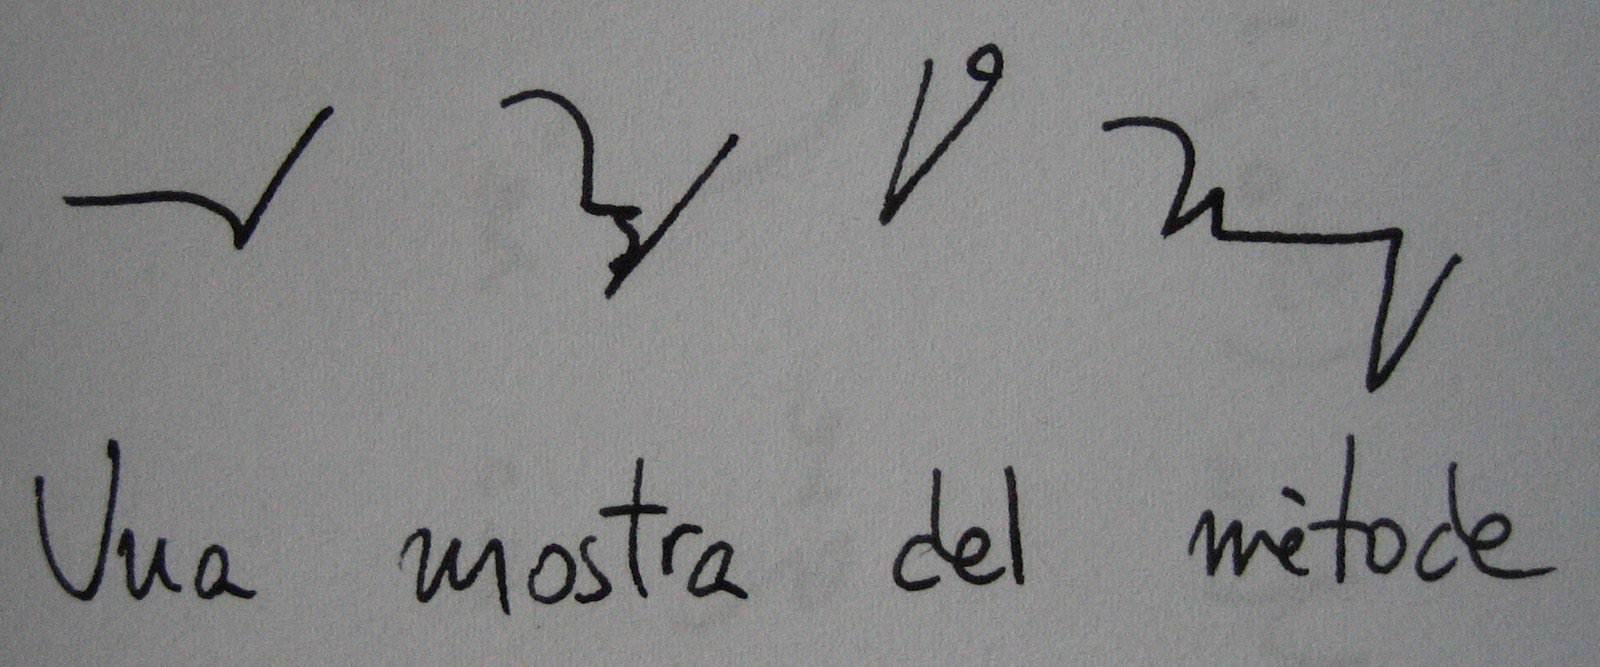 Una mostra del mètode